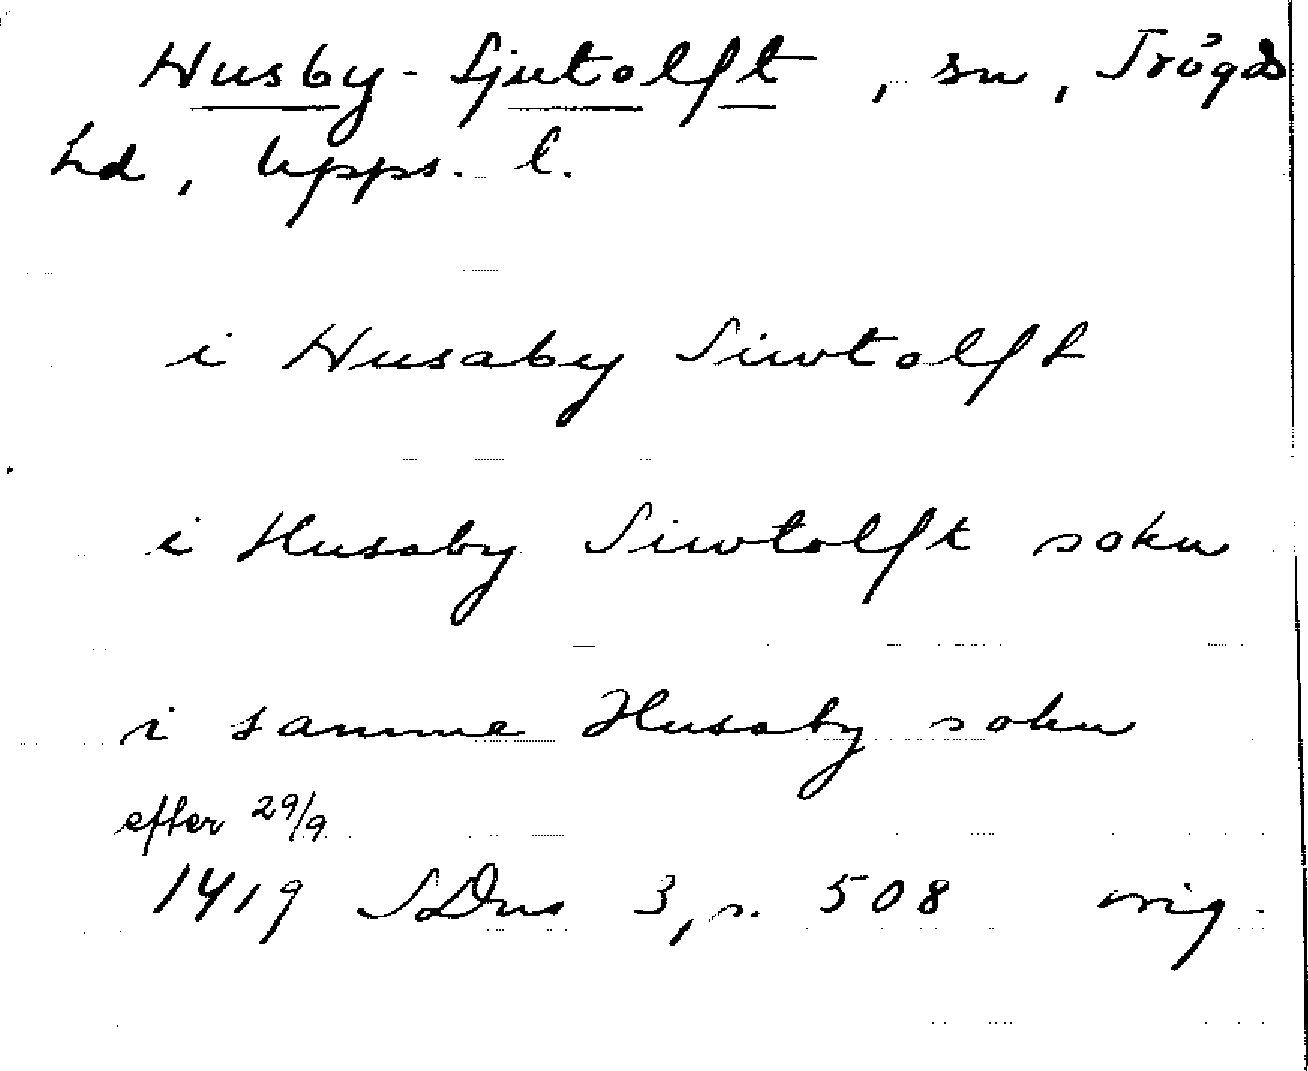 Husby-Sjutolft, sn, Trögds
hd, Upps. l.
i Husaby Siwtolft
i Husaby Siwtolft sokn
i samme Husaby sokn
efter 29/9
1419 SDns 3, s. 508 orig.